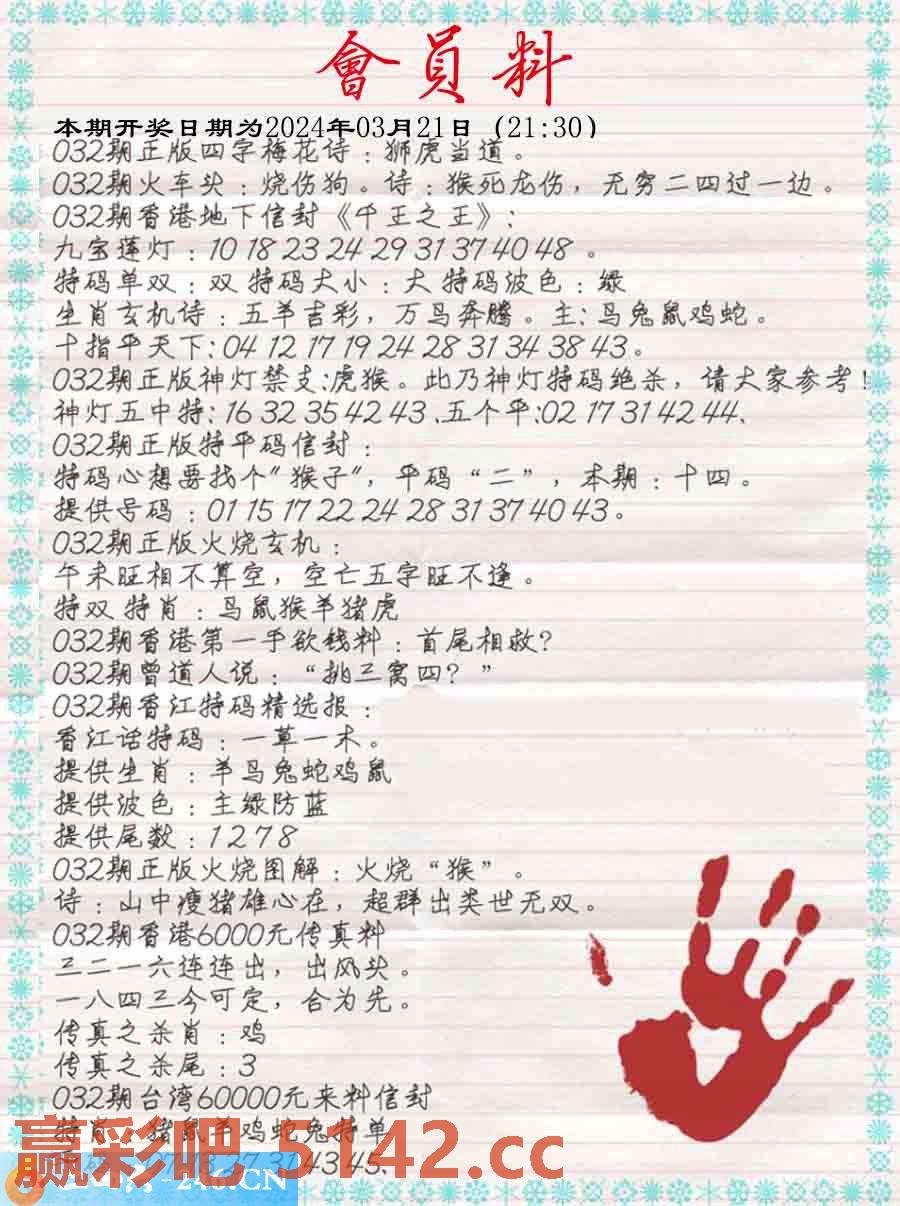 會員料
本期开奖日期为2024年03月21日（21:30）
032期正版四字梅花诗：狮虎当道。
032期火车头：烧伤狗。诗：猴死龙伤，无穷二四过一边。
032期香港地下信封《千王之王》：
九宝莲灯：10 18 23 24 29 31 37 40 48 。
特码单双：双 特码大小：大 特码波色：绿
生肖玄机诗：五羊吉彩，万马奔腾。主：马兔鼠鸡蛇。
十指平天下：04 12 17 19 24 28 31 34 38 43。
032期正版神灯禁支:虎猴。此乃神灯特码绝杀，请大家参考！
神灯五中特：16 32 35 42 43 .五个平:02 17 31 42 44.
032期正版特平码信封：
特码心想要找个"猴子"，平码“二”，本期：十四。
提供号码：01 15 17 22 24 28 31 37 40 43。
032期正版火烧玄机：
午未旺相不算空，空亡五字旺不逢。
特双 特肖：马鼠猴羊猪虎
032期香港第一手欲钱料：首尾相救？
032期曾道人说：“挑三窝四？”
032期香江特码精选报：
香江话特码：一草一木。
提供生肖：羊马兔蛇鸡鼠
提供波色：主绿防蓝
提供尾数：1 2 7 8
032期正版火烧图解：火烧“猴”。
诗：山中瘦猪雄心在，超群出类世无双。
032期香港6000元传真料
三二一六连连出，出风头。
一八四三今可定，合为先。
传真之杀肖：鸡
传真之杀尾：3
032期台湾60000元来料信封
特肖：猪鼠羊鸡蛇兔特单
43 45.
赢彩吧·5142.cc
246.CN